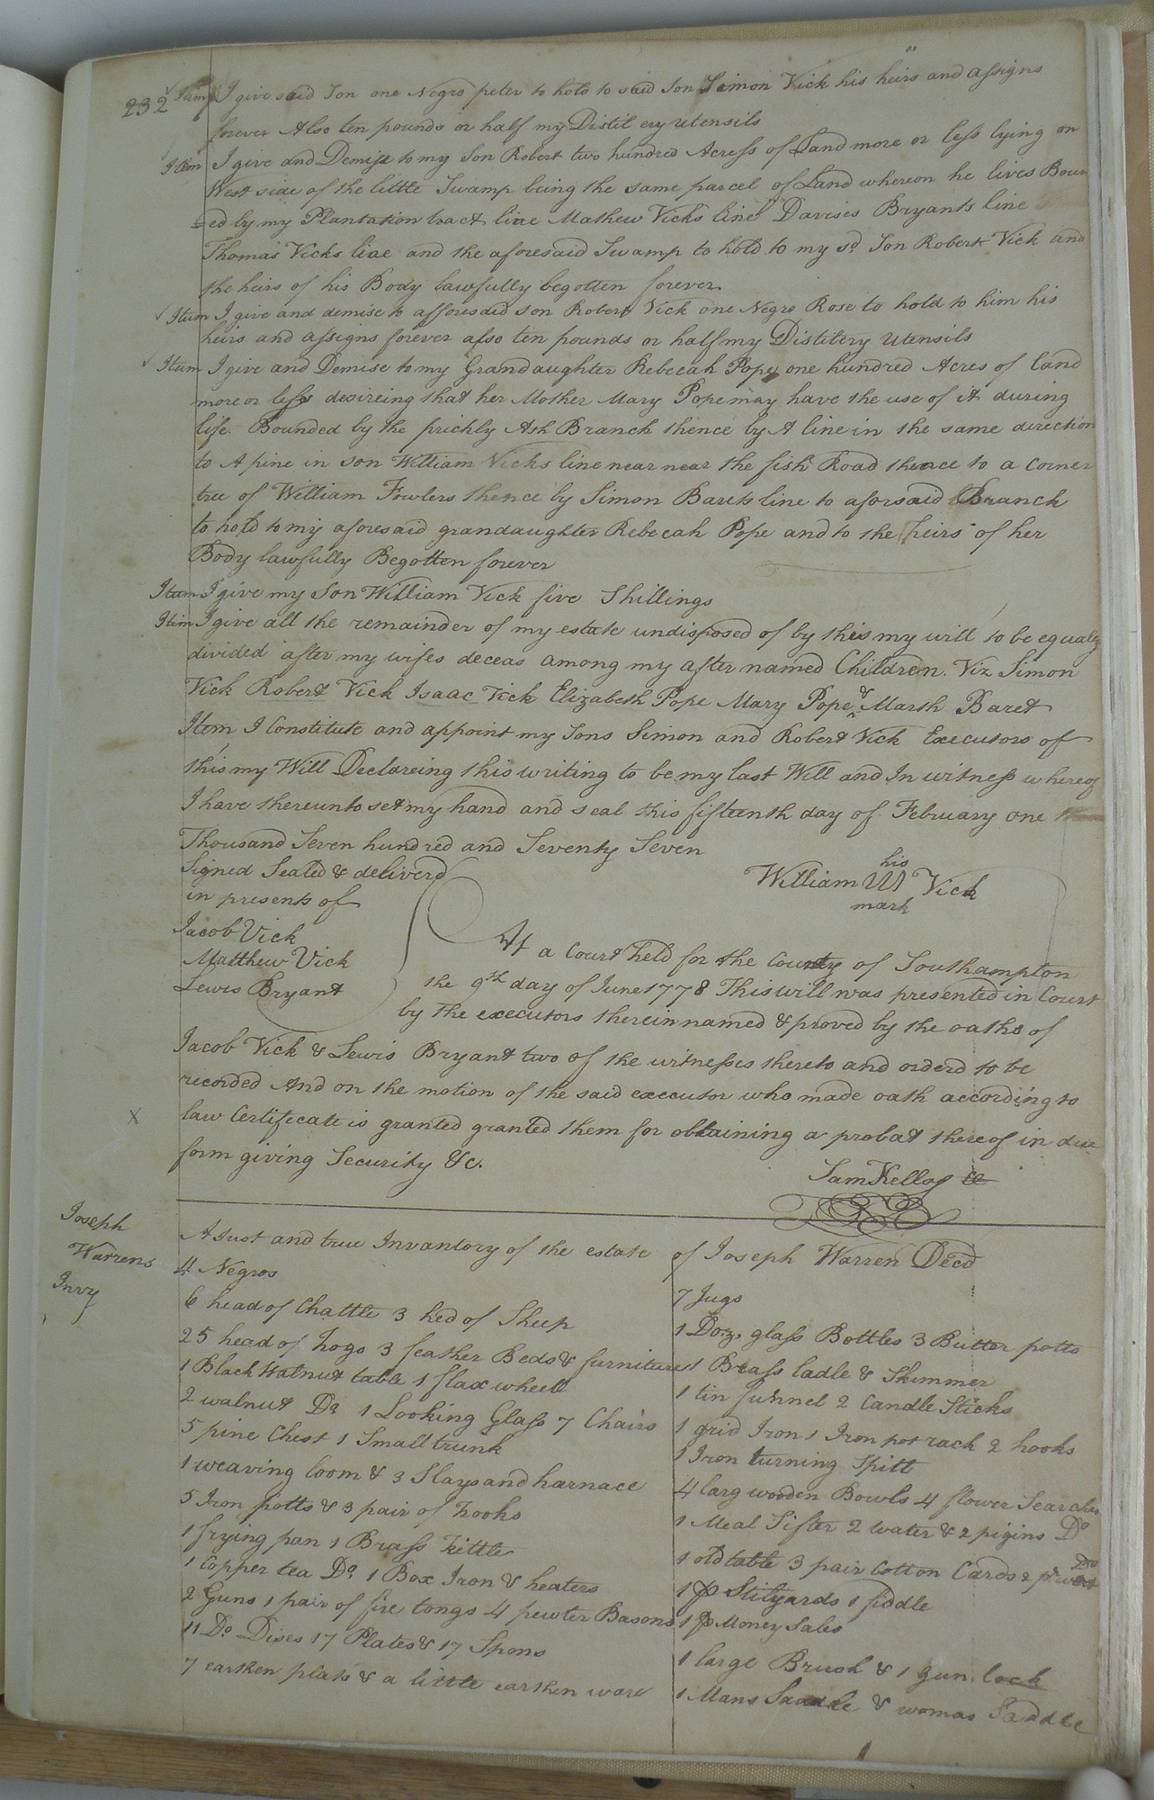 232
Itum I give said Son one Negro peter to hold to said Son Simon Vick his heirs and assigns
forever Also ten pounds or half my Distilery Utensils
Item I give and Demise to my Son Robert two hundred Acress of Land more or less lying on
West side of the little Swamp being the same parcel of Land whereon he lives Boun
=ed by my Plantation tract line Mathew Vicks line Davises Bryants line
Thomas Vicks line and the aforesaid Swamp to hold to my sd. Son Robert Vick and
the heirs of his Body lawfully begotten forever.
Itum I give and demise to afforesaid son Robert Vick one Negro Rose to hold to him his
heirs and assigns forever also ten pounds or half my Distilery Utensils
Itum I give and Demise to my Grandaughter Rebecah Pope one hundred Acres of land
more or less desireing that her Mother Mary Pope may have the use of it during
life. Bounded by the prickly Ash Branch thence by A line in the same direction
to A pine in son William Vicks line near near the fish Road thence to a corner
tree of William Fowlers thence by Simon Barets line to aforsaid Branch
to hold to my aforesaid grandaughter Rebecah Pope and to the heirs of her
Body lawfully Begotten forever
Itum I give my Son William Vick five Shillings
Itim I give all the remainder of my estate undisposed of by this my will to be equaly
divided after my wifes deceas among my after named Children. Viz Simon
Vick Robert Vick Isaac Vick Elizabeth Pope Mary Pope & Marth Baret
Item I Constitute and appoint my Sons Simon and Robert Vick Executors of
this my Will Declareing this writing to be my last Will and In witness whereof
I have thereunto set my hand and seal this fifteenth day of February one
Thousand Seven hundred and Seventy Seven
Signed Sealed & deliverd
in presents of
Jacob Vick
Matthew Vick
Lewis Bryant
his
William W Vick
mark
At a Court held for the County of Southampton
the 9th day of June 1778 This will was presented in Court
by the executors therein named & proved by the oaths of
Jacob Vick & Lewis Bryant two of the witnesses thereto and orderd to be
recorded And on the motion of the said executor who made oath according to
law Certificate is granted granted them for obtaining a probat thereof in due
form giving Security &c.
Sam Kello
Joseph
Warrens
Invy
A Just and true Invantory of the estate of Joseph Warren Decd
4 Negros
6 head of Chattle 3 hed of Sheep
25 head of hogs 3 feather Beds & furniture
1 Black Walnut table 1 flax wheel
2 walnut Do 1 Looking Glass 7 Chairs
5 pine Chest 1 Small trunk
1 weaving loom & 3 Slays and harnace
5 Iron potts & 3 pair of hooks
1 frying pan 1 Brass kittle
1 Copper tea Do. 1 Box Iron & heaters
2 Guns 1 pair of fire tongs 4 pewter Basons
11 Do Dises 17 Plates & 17 Spons
7 earthen plats & a little earthen ware
7 Jugs
1 Doz. glass Bottles 3 Butter potts
1 Brass ladle & Skimmer
1 tin funnel 2 Candle Sticks
1 grid Iron 1 Iron pot rack 2 hooks
1 Iron turning Spitt
4 larg wooden Bowls 4 flower
1 Meal Sifter 2 water & 2 pigins Do
1 old table 3 pair Cotton Cards 2 pr
1 pr Stilyards 1 fiddle
1 pr Money Sales
1 large Brush & 1 gun lock
1 Mans Saddle & womas Saddle